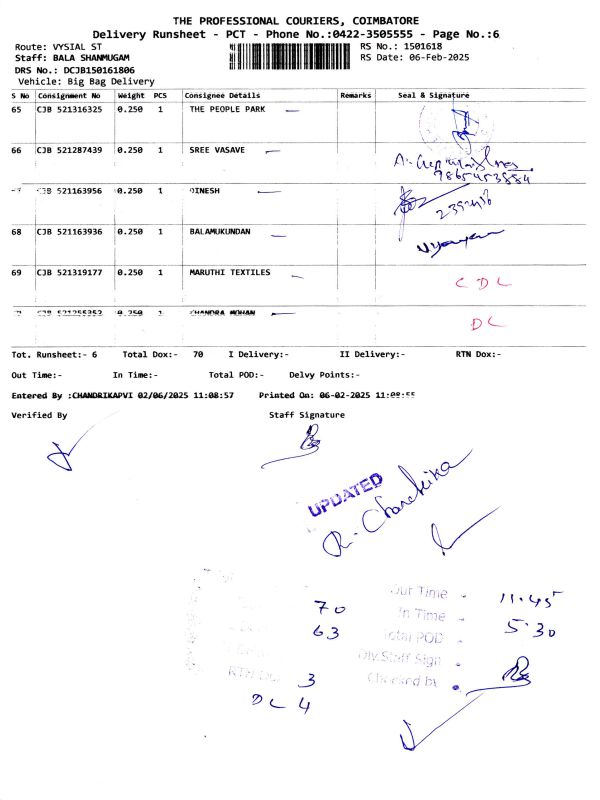 THE PROFESSIONAL COURIERS, COIMBATORE
Delivery Runsheet - PCT - Phone No.:0422-3505555 - Page No.:6
Route: VYSIAL ST RS No.: 1501618
Staff: BALA SHANMUGAM RS Date: 06-Feb-2025
DRS No.: DCJB150161806
Vehicle: Big Bag Delivery
S No Consignment No Weight PCS Consignee Details Remarks Seal & Signature
65 CJB 521316325 0.250 1 THE PEOPLE PARK
66 CJB 521287439 0.250 1 SREE VASAVE
9865453884
CJB 521163956 0.250 1 DINESH
68 CJB 521163936 0.250 1 BALAMUKUNDAN
69 CJB 521319177 0.250 1 MARUTHI TEXTILES
CDL
CJB 521255352 0.250 1 CHANDRA MOHAN
DL
Tot. Runsheet:- 6 Total Dox:- 70 I Delivery:- II Delivery:- RTN Dox:-
Out Time:- In Time:- Total POD:- Delvy Points:-
Entered By :CHANDRIKAPVI 02/06/2025 11:08:57 Printed On: 06-02-2025 11:08:55
Verified By Staff Signature
UPDATED
R. Chandrika
70 Out Time - 11.45
63 In Time - 5.30
Total POD -
Dly.Staff Sign -
3 Checked by
DL 4